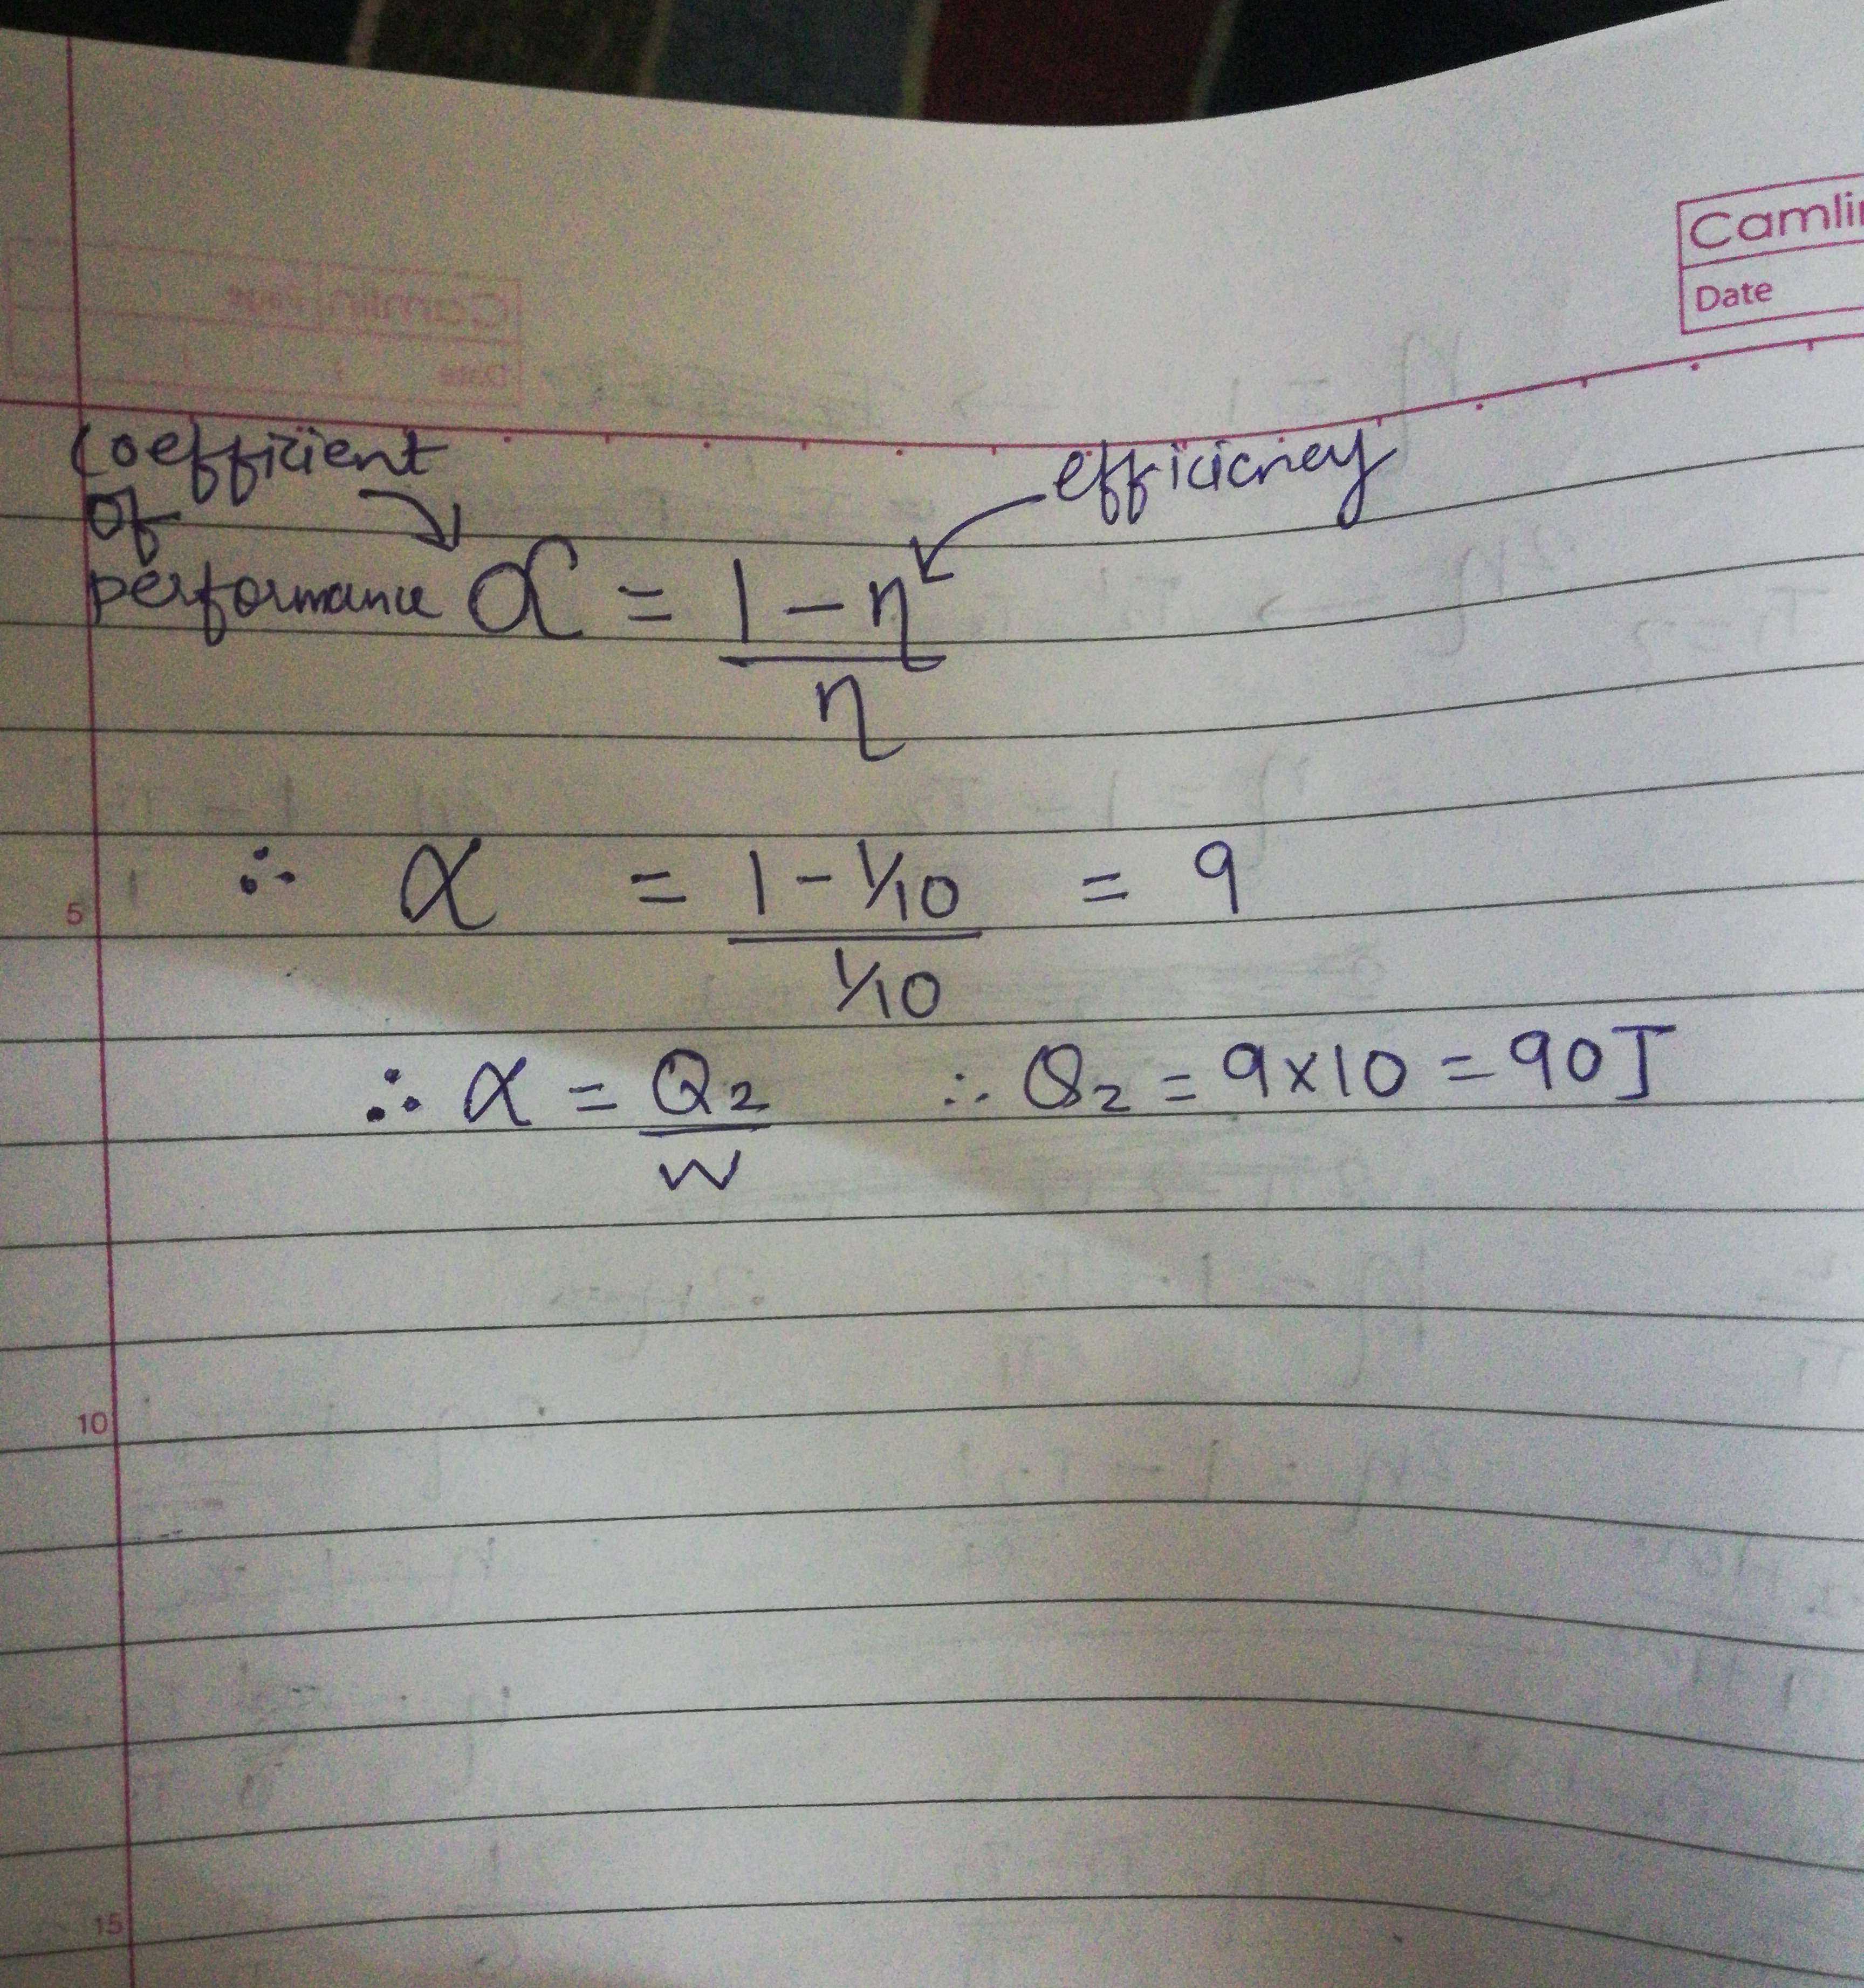 Camlin
Date
Coefficient
of
performance
efficiency
α = 1 - η / η
5
∴ α = 1 - 1/10 / 1/10 = 9
∴ α = Q2 / W ∴ Q2 = 9x10 = 90J
10
15